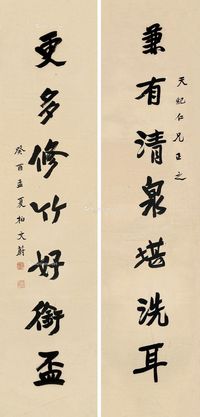 天纪仁兄正之
兼有清泉堪洗耳
更多修竹好衔杯
癸酉孟夏柏文蔚